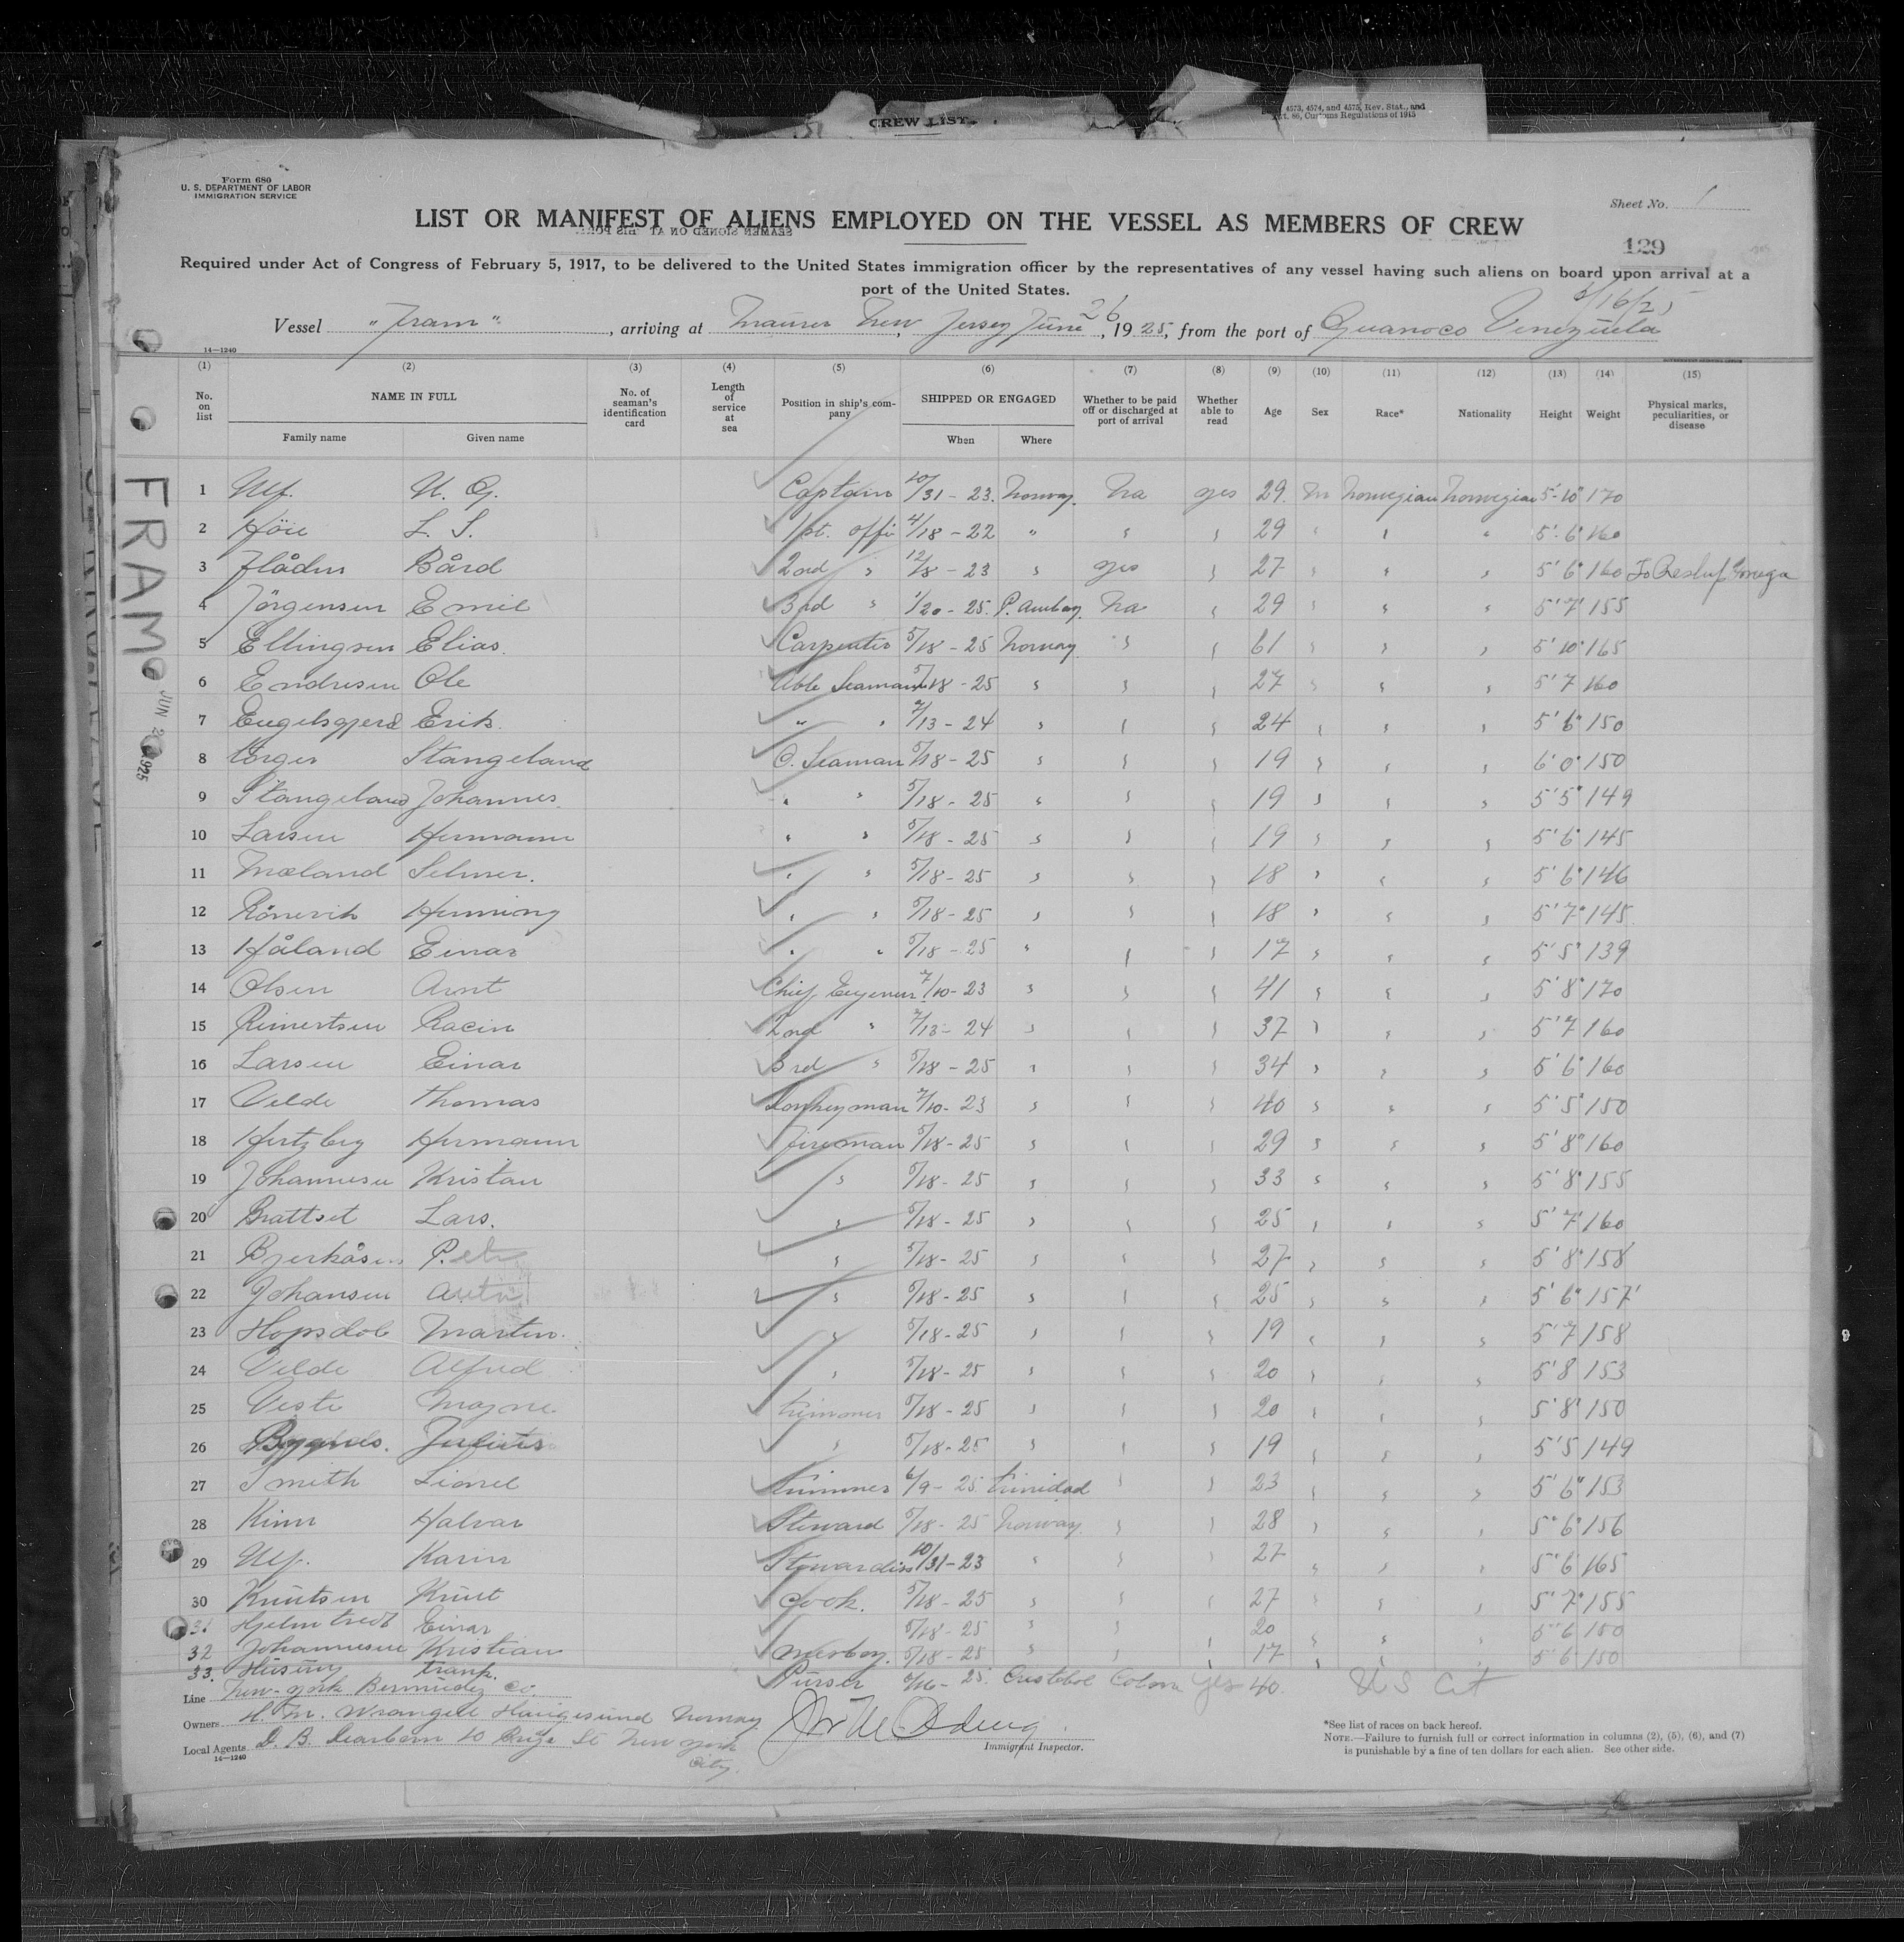 4573, 4574, and 4575, Rev. Stat., and
Art. 86, Customs Regulations of 1915
CREW LIST
Form 680
U. S. DEPARTMENT OF LABOR
IMMIGRATION SERVICE
Sheet No. 1
LIST OR MANIFEST OF ALIENS EMPLOYED ON THE VESSEL AS MEMBERS OF CREW
SEAMEN SIGNED ON AT THIS PORT
129
Required under Act of Congress of February 5, 1917, to be delivered to the United States immigration officer by the representatives of any vessel having such aliens on board upon arrival at a
port of the United States.
6/16/25
Vessel "Fram", arriving at Maurer New Jersey June 26, 1925, from the port of Guanoco Venezuela
14—1240
(1) (2) (3) (4) (5) (6) (7) (8) (9) (10) (11) (12) (13) (14) (15)
No. on list NAME IN FULL Family name Given name No. of seaman's identification card Length of service at sea Position in ship's company SHIPPED OR ENGAGED When Where Whether to be paid off or discharged at port of arrival Whether able to read Age Sex Race* Nationality Height Weight Physical marks, peculiarities, or disease
FRAM
JUN 2 1925
1 Ulf. U. G. Captain 10/31-23. Norway. Na yes 29. M Norwegian Norwegian 5'-10" 170
2 Höie L. S. 1st. offi 4/18-22 " " " 29 " " " 5'-6" 160
3 Flåden Bård 2ond " 12/8-23 " yes " 27 " " " 5'6" 160
4 Jörgensen Emil 3rd " 1/20-25. P. Amboy. Na " 29 " " " 5'7" 155
5 Ellingsen Elias. Carpenter 5/18-25 Norway " " 61 " " " 5'10" 165
6 Endresen Ole Able Seaman 5/18-25 " " " 27 " " " 5'7 160
7 Engelsgjerd Erik. " " 7/13-24 " " " 24 " " " 5'6" 150
8 Stangeland O. Seaman 5/18-25 " " " 19 " " " 6'0" 150
9 Stangeland Johannes. " " 5/18-25 " " " 19 " " " 5'5" 149
10 Larsen Hermann " " 5/18-25 " " " 19 " " " 5'6" 145
11 Mæland Selmer. " " 5/18-25 " " " 18 " " " 5'6" 146
12 Rönevik Henning " " 5/18-25 " " " 18 " " " 5'7" 145.
13 Håland Einar " " 5/18-25 " " " 17 " " " 5'5" 139
14 Olsen Arnt Chief Engener. 7/10-23 " " " 41 " " " 5'8" 170
15 Reinertsen Racin 2ond " 7/13-24 " " " 37 " " " 5'7 160
16 Larsen Einar 3rd " 5/18-25 " " " 34 " " " 5'6" 160
17 Velde Thomas Donkeyman 7/10-23 " " " 40 " " " 5'5" 150
18 Hertzberg Hermann fireman 5/18-25 " " " 29 " " " 5'8" 160
19 Johannesen Kristan " 5/18-25 " " " 33 " " " 5'8" 155
20 Brattset Lars. " 5/18-25 " " " 25 " " " 5'7" 160
21 Bjerkåsen Petr " 5/18-25 " " " 27 " " " 5'8" 158
22 Johansen " 5/18-25 " " " 25 " " " 5'6" 157
23 Hopsdal Martin. " 5/18-25 " " " 19 " " " 5'7 158
24 Velde Alfred " 5/18-25 " " " 20 " " " 5'8 153
25 Veste Magne trimmer 5/18-25 " " " 20 " " " 5'8" 150
26 Julius " 5/18-25 " " " 19 " " " 5'5 149
27 Smith Lionel trimmer 6/9-25 Trinidad " " 23 " " " 5'6" 153
28 Kinn Halvar Steward 5/18-25 Norway. " " 28 " " " 5'6" 156
29 Ulf. Karin Stewardiss 10/31-23 " " " 27 " " " 5'6 165
30 Knutsen Knut Cook. 5/18-25 " " " 27 " " " 5'7" 155
31 Einar 5/18-25 " " 20 5'6 150
32 Johannesen Kristian Messboy. 5/18-25 " " 17 " " " 5'6 150
33. Husing Frank. Purser 6/16-25. Cristobol Colon Yes 40. US Cit
Line New-York Bermudez Co.
Owners H. M. Wrangell Haugesund Norway
Local Agents D. B. Dearborn 10 Bridge St New York
City.
14—1240
Immigrant Inspector.
*See list of races on back hereof.
NOTE.—Failure to furnish full or correct information in columns (2), (5), (6), and (7)
is punishable by a fine of ten dollars for each alien. See other side.